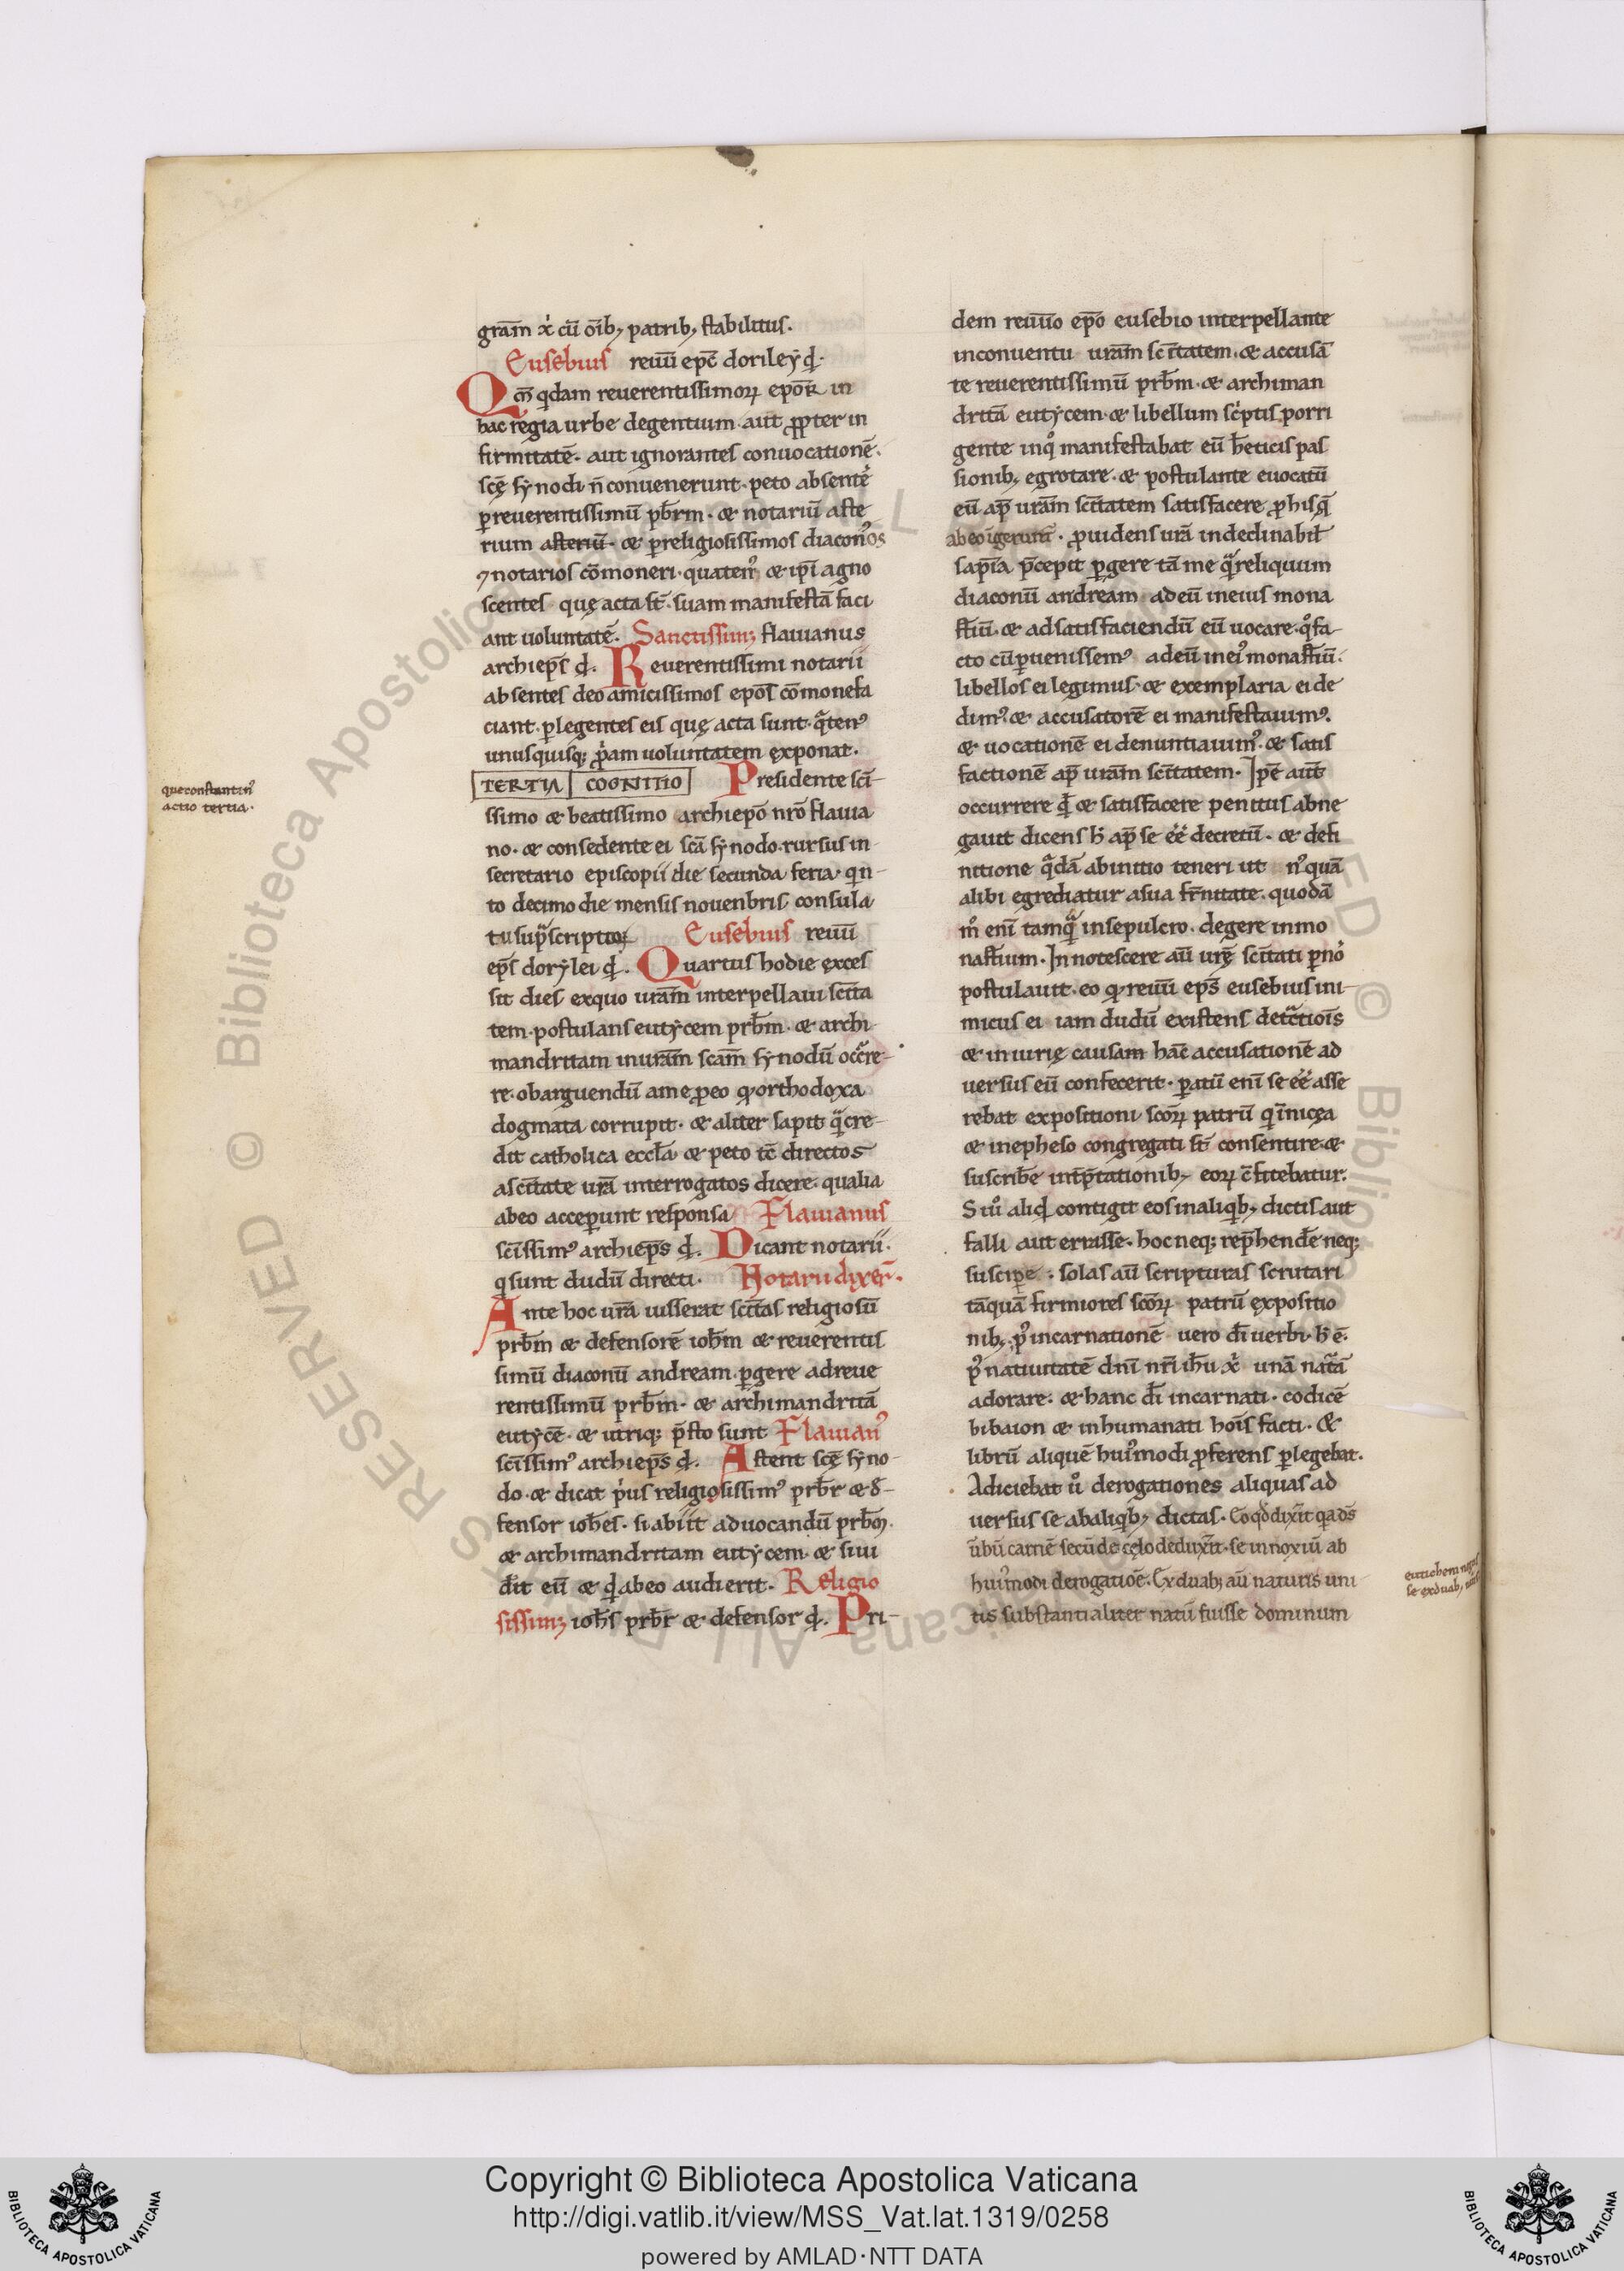 gram̄ xp̄i cū oīb; patrib; stabilitus.
Eusebius reuūū epc̄ dorileẏ q̄d.
Qm̄ qidam reuerentissimoꝝ epōꝝ in
hac regia urbe degentium aut ꝓpter in
firmitatē. aut ignorantes conuocationē.
scę sẏnodi n̄ conuenerunt. peto absentē
ꝑ reuerentissimū pr̄bm. & notariū aste
rium asteriū. & ꝑ religiosissimos diaconos
⁊ notarios cōmoneri. quaten᷒ & ip̄i agno
scentes quę acta st̄. suam manifestā faci
ant uoluntatē. Sanctissim; flauianus
archiep̄s q̄d. Reuerentissimi notarii
absentes deo amicissimos epōs cōmonefa
ciant. ꝑlegentes eis quę acta sunt. q̄ten᷒
unusquisq; ꝓpam uoluntatem exponat.
TERTIA COGNITIO Presidente scī
ssimo & beatissimo archiepō nrō flauia
no. & consedente ei scā sẏnodo. rursus in
secretario episcopii die secunda feria. qin
to decimo die mensis nouenbris consula
tu sup̄scriptoꝝ Eusebius reuūū
ep̄s dorẏlei q̄d. Quartus hodie exces
sit dies ex quo uram̄ interpellaui scīta
tem. postulans eutẏcem prb̄m. & archi
mandritam in uram̄ scam̄ sẏnodū occ̄re
re. ob arguendū a me ꝓ eo qꝫ orthodoxa
dogmata corrupit. & aliter sapit q̄ cre
dit catholica eccl̄a & peto tc̄ directos
a scītate ura̅ interrogatos dicere. qualia
ab eo acceperunt responsa Flauianus
scīssim᷒ archiep̄s q̄d. Dicant notarii.
qi sunt dudū directi. Notarii dixer̄.
Ante hoc ura̅ iusserat scītas religiosū
prb̄m & defensorē ioh̄m & reuerentis
simū diaconū andream. ꝑgere ad reue
rentissimū prb̄m. & archimandritā
eutẏcē. & utriq; p̄sto sunt Flauian᷒
scīssim᷒ archiep̄s q̄d. Astent scę sẏno
do. & dicat p̄us religiosissim᷒ prb̄r & d̄
fensor ioh̄es. si abiit aduocandū prb̄m.
& archimandritam eutẏcem. & si ui
dit eū & qd ab eo audierit. Religio
sissim; ioh̄s prb̄r & defensor q̄d. Pri
dem reuūo epō eusebio interpellante
in conuentu uram̄ sc̄ītatem. & accusā
te reuerentissimū prb̄m. & archiman
dritā eutẏcem. & libellum sc̄ptis porri
gente in qͦ manifestabat eū h̄eticis pas
sionib; egrotare. & postulante euocatū
eū ap̄ uram̄ scītatem satisfacere ꝓ his q̄
ab eo igerunt̄. ꝓuidens ura̅ indeclinabil̄
sapīa p̄cepit ꝑgere tā me q̄ reliquum
diaconū andream ad eū in eius mona
st̄iū. & ad satisfaciendū eū uocare. qͦ fa
cto cū ꝑuenissem᷒ ad eū in ei᷒ monast̄iū.
libellos ei legimus. & exemplaria ei de
dim᷒. & accusatorē ei manifestauim᷒.
& uocationē ei denuntiauim᷒. & satis
factionē ap̄ uram̄ scītatem. Ip̄e aut̄
occurrere qd̄ & satisfacere penitus abne
gauit dicens h̄ ap̄ se eē decretū. & defi
nitione q̄dā ab initio teneri ut nuͥquā
alibi egrediatur a sua fr̄nitate. quodā
mͦ eni tamq̄ in sepulcro. degere in mo
nast̄ium. Innotescere au̅ urę scītati ꝑ no
postulauit. eo qꝫ reuūū ep̄s eusebius ini
micus ei iam dudū existens detc̄tiois̄
& iniurię causam hāc accusationē ad
uersus eū confecerit. paratū eni se eē asse
rebat expositioni scōꝝ patrū qi in nicęa
& in epheso congregati st̄ consentire. &
suscribe int̄p̄tationib; eoꝝ c̄fitebatur.
Si uͦ aliqd̄ contigit eos in aliqib; dictis aut
falli aut errasse. hoc neq; rep̄hend̄e neq;
suscipe. solas au̅ scripturas scrutari
tāquā firmiores scōꝝ patrū expositio
nib; pͦ incarnationē uero dī uerbi. h̄ ē.
pͦ natiuitatē dn̄i nr̄i ih̄u xp̄i unā nat̄ā
adorare. & hanc dī incarnati. codicē
bibaion & inhumanati hoīs facti. &
librū aliquē hui᷒modi ꝓferens ꝑlegebat.
Adiciebat uͦ derogationes aliquas ad
uersus se ab aliqib; dictas. Eo qd̄ dixīt qia d̄s
ūbū carnē secū de cęlo deduxīt. se innoxiū ab
hui᷒modi derogatioē. Ex duab; au̅ naturis uni
tis substantialiter natū fuisse dominum
que constantin᷒
actio tertia.
eutichem
se ex duab;
Copyright © Biblioteca Apostolica Vaticana
http://digi.vatlib.it/view/MSS_Vat.lat.1319/0258
powered by AMLAD·NTT DATA
BIBLIOTECA APOSTOLICA VATICANA
BIBLIOTECA APOSTOLICA VATICANA